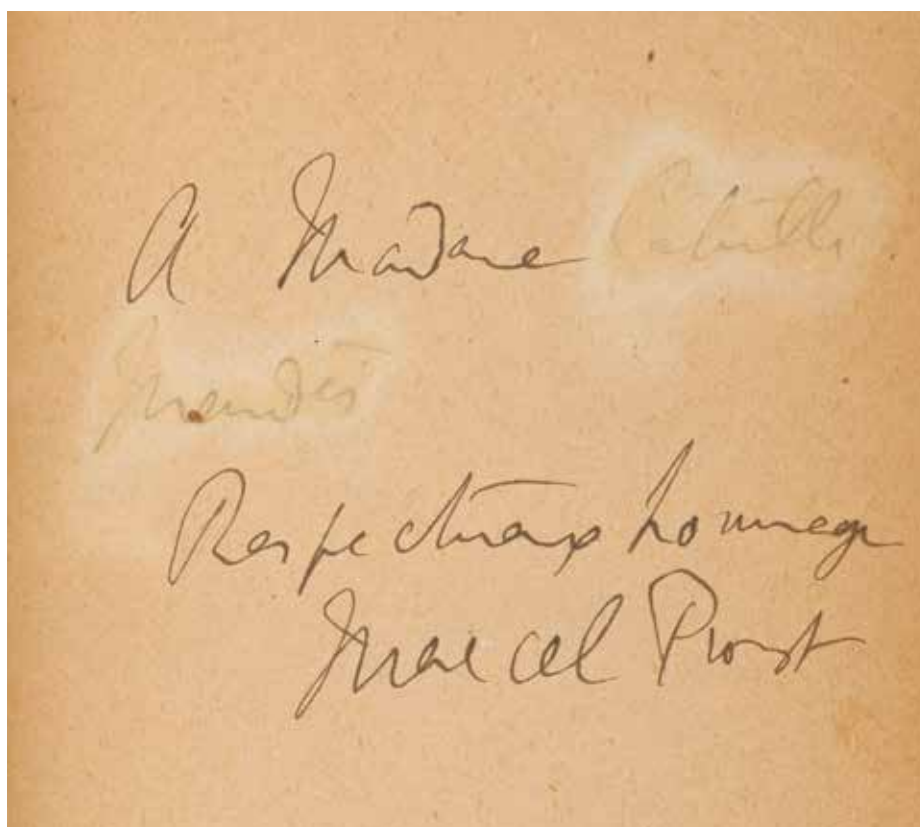 A Madame Catulle
Mendès
Respectueux hommage
Marcel Proust